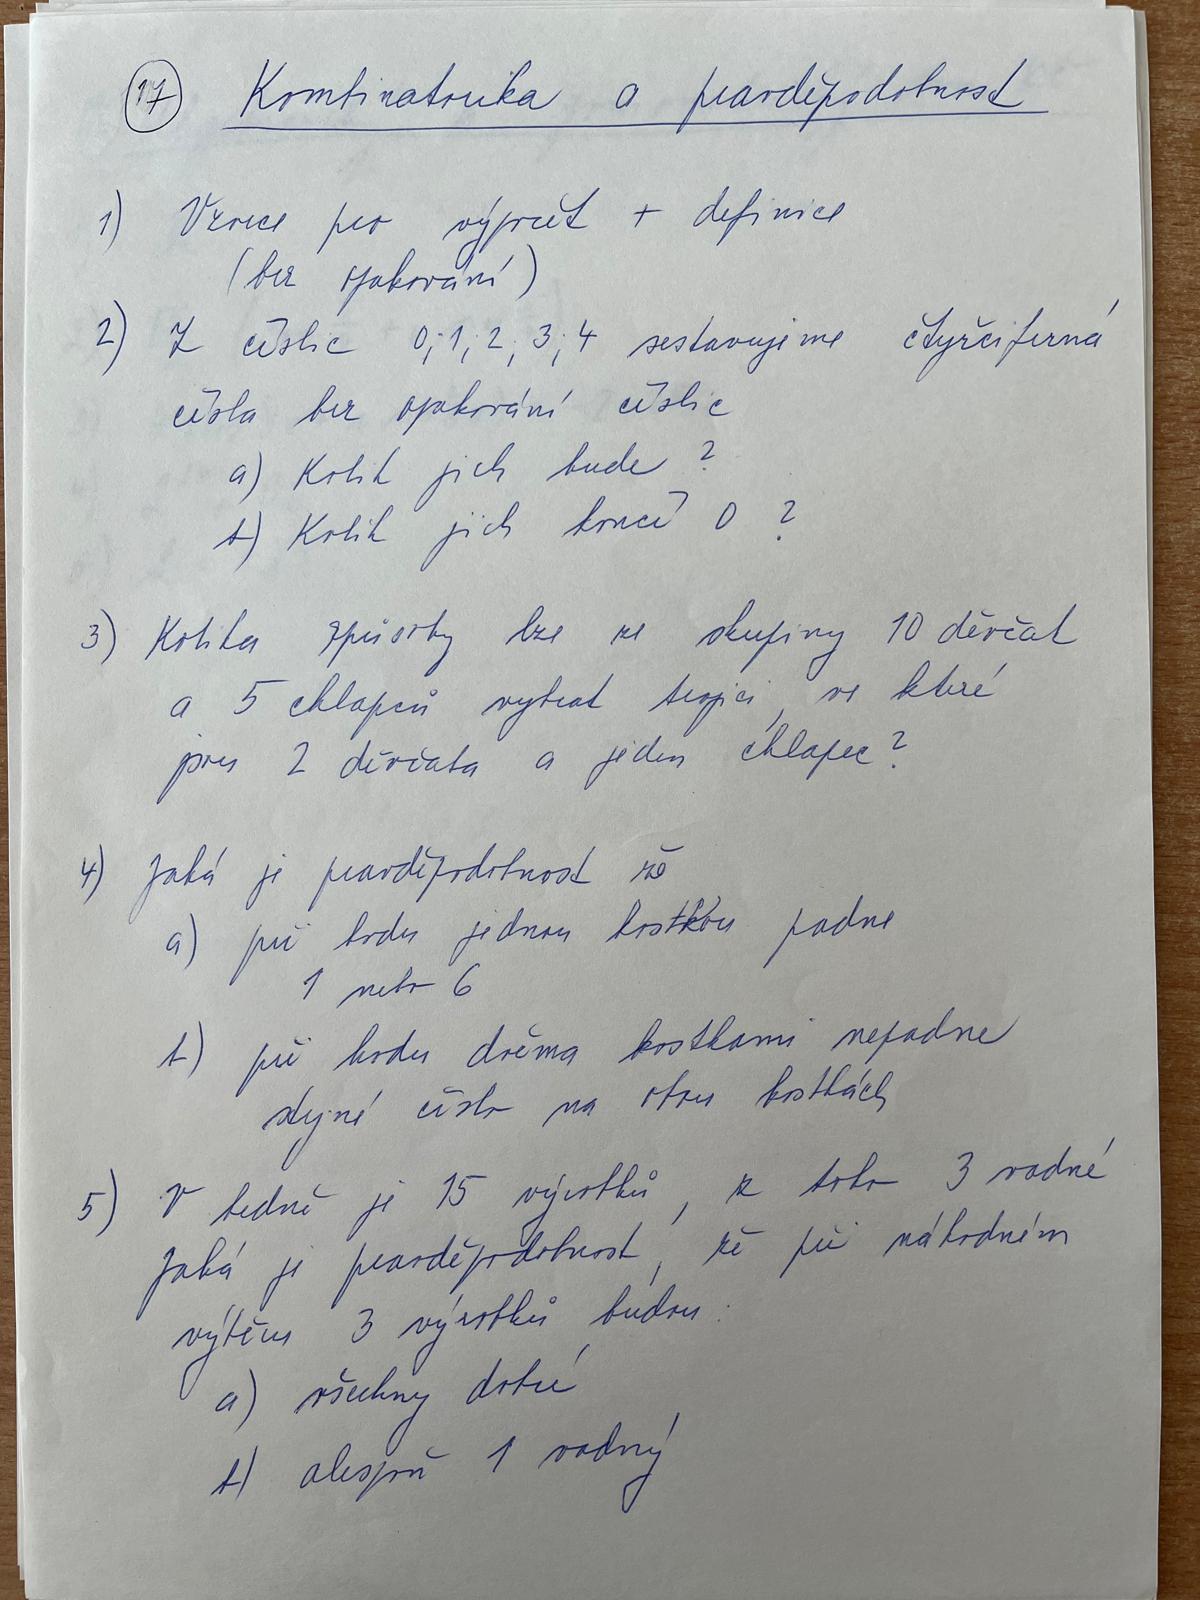 17 Kombinatorika a pravděpodobnost
1) Vzorce pro výpočet + definice
(bez opakování)
2) Z číslic 0, 1, 2, 3, 4 sestavujeme čtyřčiferná
čísla bez opakování číslic
a) Kolik jich bude ?
b) Kolik jich končí 0 ?
3) Kolika způsoby lze ze skupiny 10 děvčat
a 5 chlapců vybrat trojici, ve které
jsou 2 děvčata a jeden chlapec?
4) Jaká je pravděpodobnost že
a) při hodu jednou kostkou padne
1 nebo 6
b) při hodu dvěma kostkami nepadne
stejné číslo na obou kostkách
5) V bedně je 15 výrobků, z toho 3 vadné
Jaká je pravděpodobnost, že při náhodném
výběru 3 výrobků budou:
a) všechny dobré
b) alespoň 1 vadný